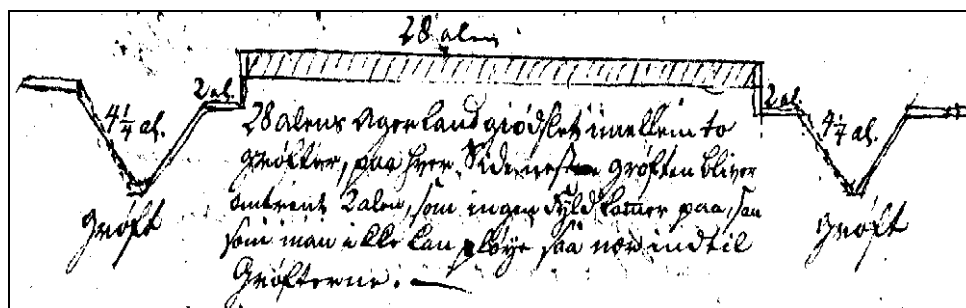 28 alen
2 al.
2 al.
4¼ al.
4¼ al.
28 alens agerland giødslet imellem to
grøfter, paa hver Side næst grøften bliver
omtrent 2 alen, som ingen Fyld kommer paa, saa
som man ikke kan pløye saa nær indtil
Grøfterne.
Grøft
Grøft